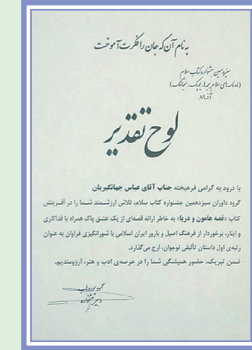 به نام آن که جان را فکرت آموخت
سیزدهمین جشنواره کتاب سلام
آذر ۸۹
لوح تقدیر
با درود به گرامی فرهیخته جناب آقای عباس جهانگیریان
گروه داوران سیزدهمین جشنواره کتاب سلام، تلاش ارزشمند شما را در آفرینش
کتاب «قصه هامون و دریا» به خاطر ارائه قصه‌ای از یک عشق پاک همراه با فداکاری
و ایثار، برخوردار از فرهنگ اصیل و بارور ایران اسلامی با شورانگیزی فراوان به عنوان
رتبه‌ی اول داستان تألیفی نوجوان، ارج می‌گذارد.
ضمن تبریک، حضور همیشگی شما را در عرصه‌ی ادب و هنر، آرزومندیم.